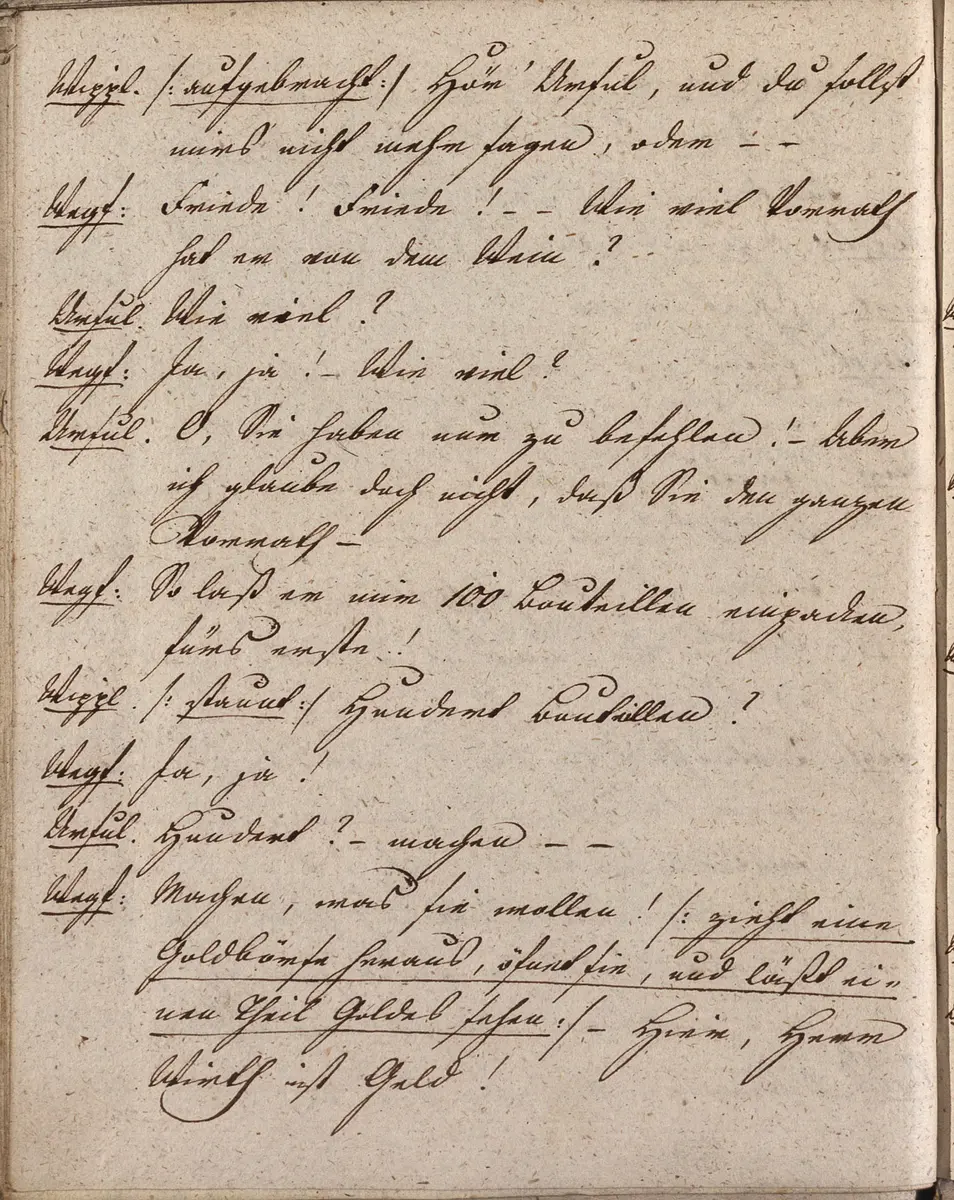 Wippl. /: aufgebracht :/ Hör' Ursul, und du sollst
mirs nicht mehr sagen, oder – –
Wegf: Friede! Friede! – – Wie viel Vorrath
hat er von dem Wein?
Ursul. Wie viel?
Wegf: Ja, ja! – Wie viel?
Ursul. O, Sie haben nur zu befehlen! – Aber
ich glaube doch nicht, daß Sie den ganzen
Vorrath –
Wegf: So laß er mir 100 Bouteillen einpacken,
fürs erste!
Wippl. /: staunt :/ Hundert Bouteillen?
Wegf: Ja, ja!
Ursul. Hundert? – machen – –
Wegf: Machen, was sie wollen! /: zieht eine
Goldbörse heraus, öfnet sie, und läßt ei-
nen Theil Goldes sehen :/ – Hier, Herr
Wirth ist Geld!